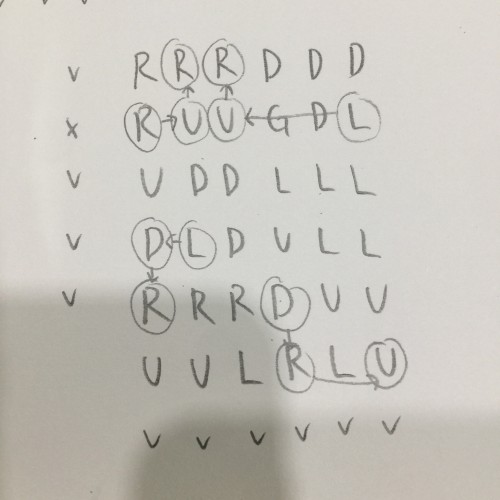 v R R R D D D
x R U U G D L
v U D D L L L
v D L D U L L
v R R R D U U
U U L R L U
v v v v v v